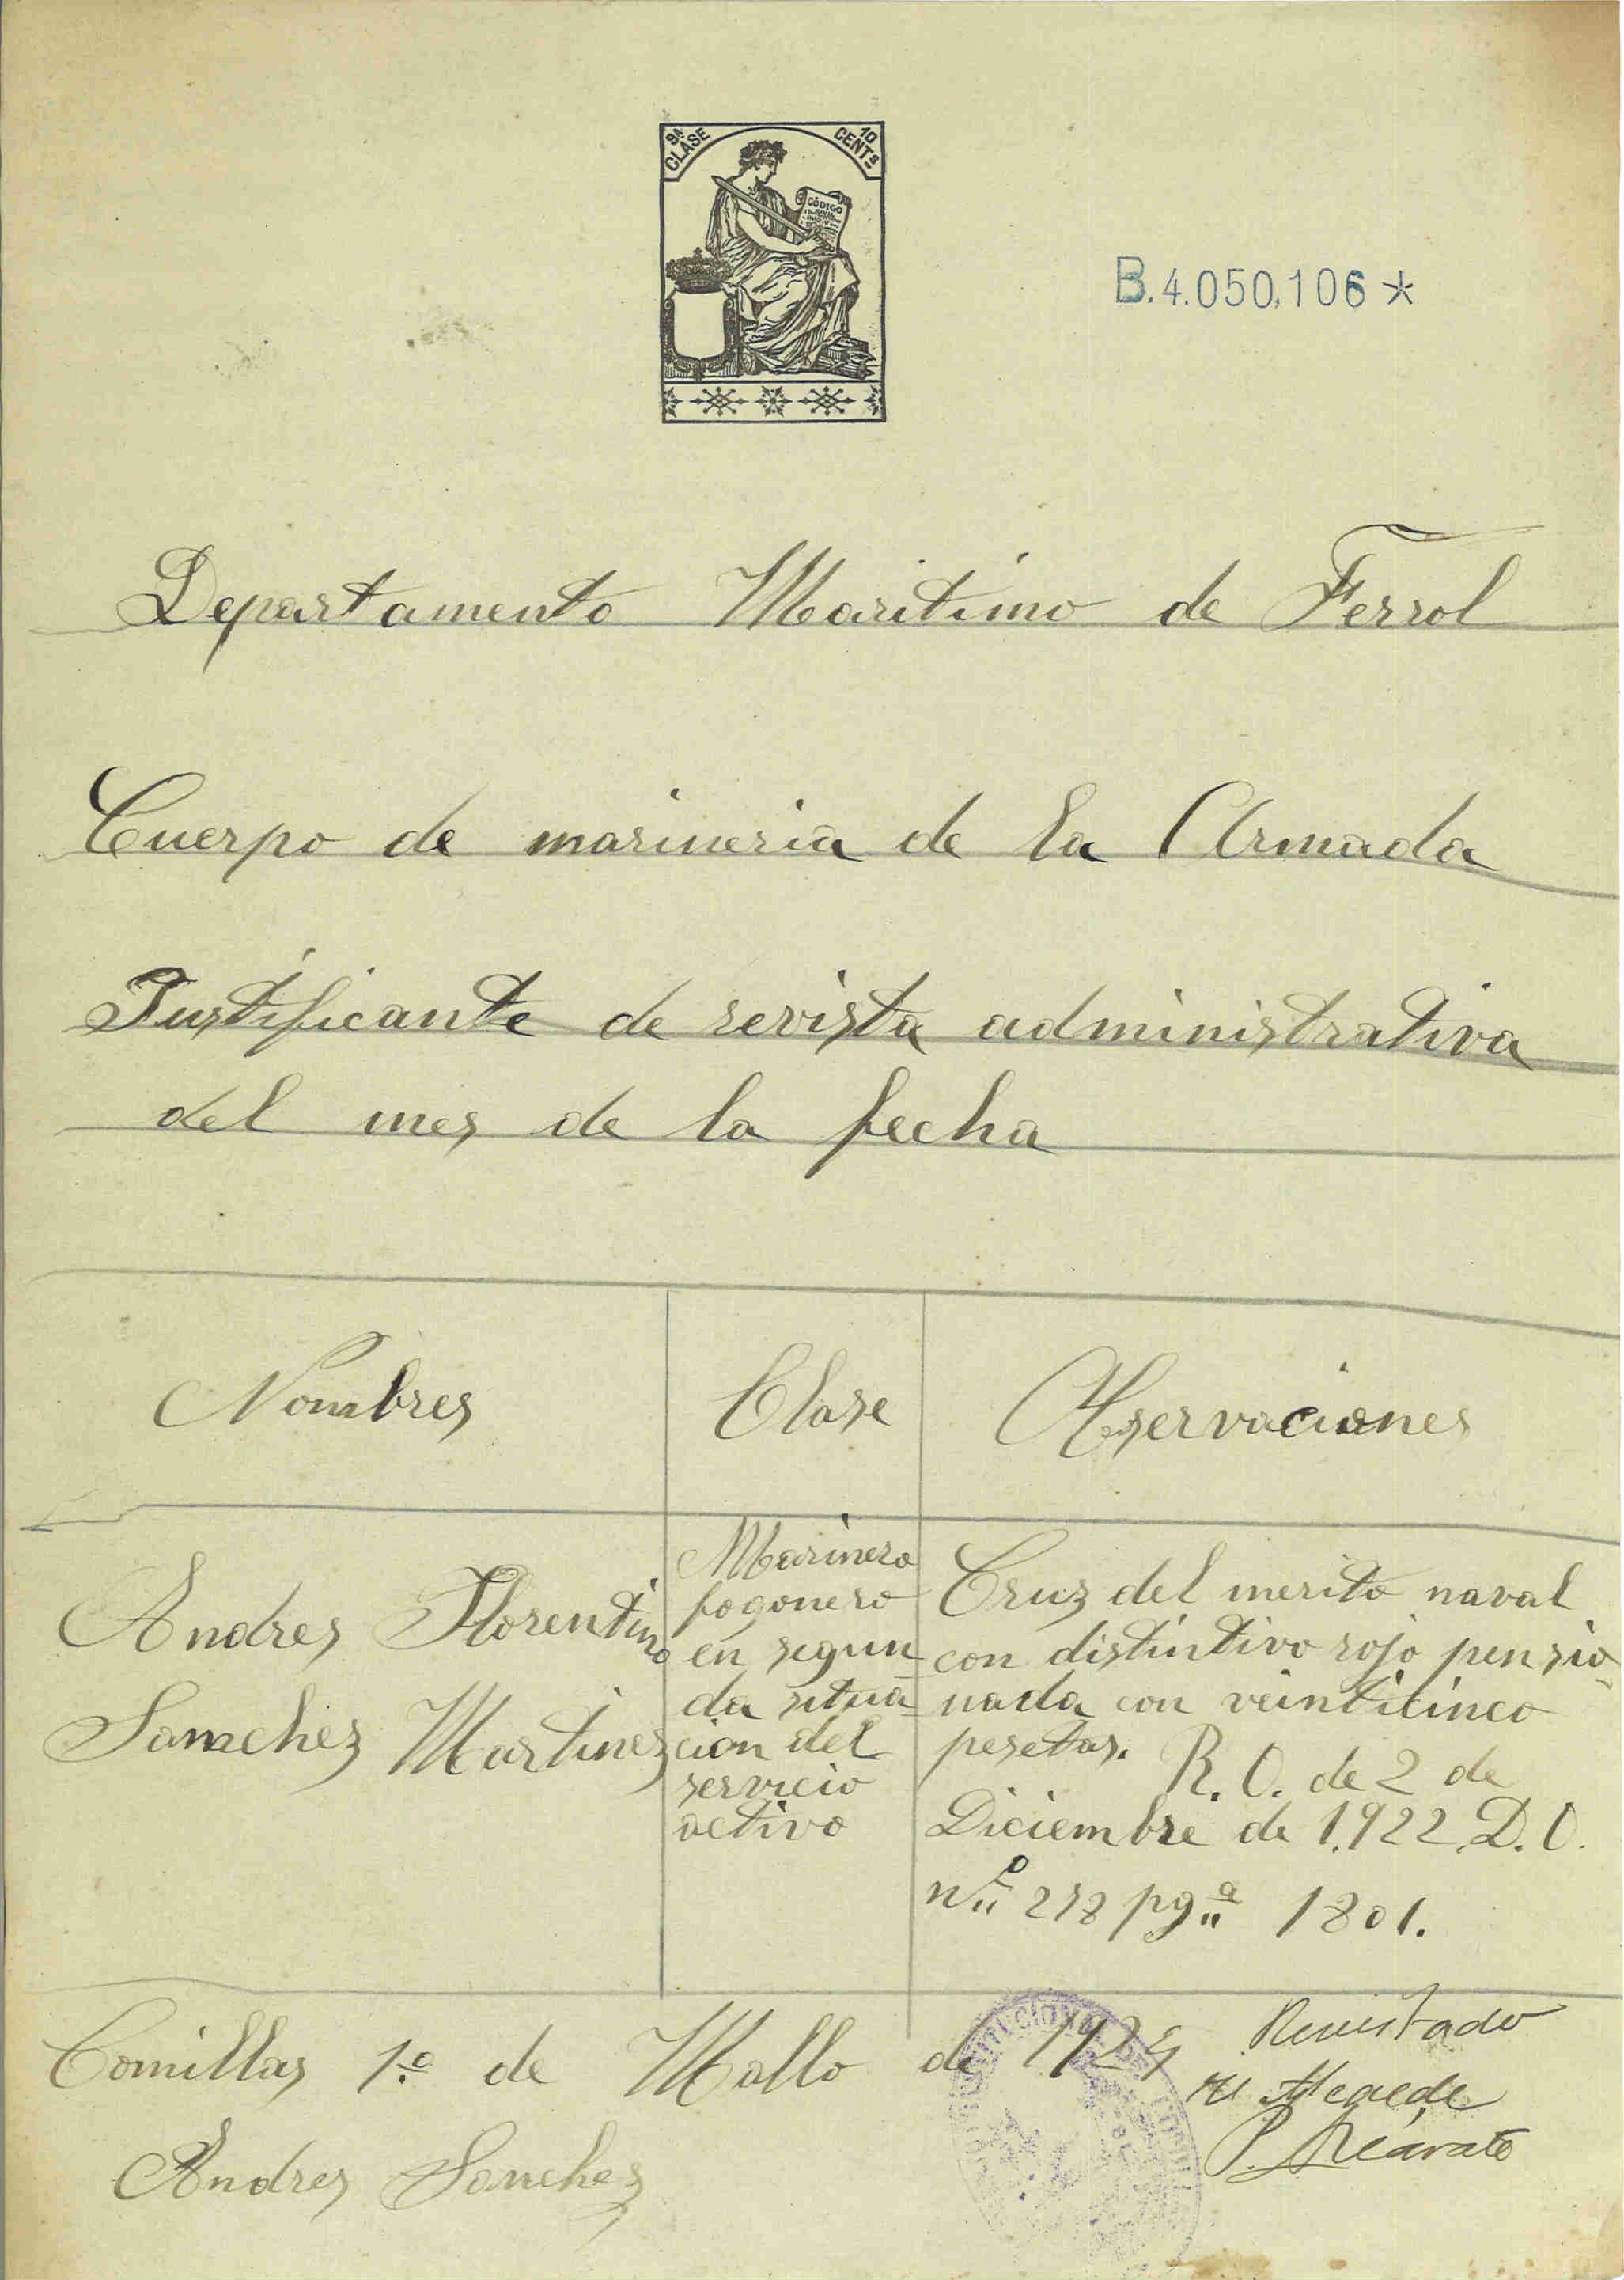 9ª CLASE 10 CENTs
CÓDIGO
B.4.050,106*
Departamento Maritimo de Ferrol
Cuerpo de marineria de la Armada
Justificante de revista administrativa
del mes de la fecha
Nombres Clase Observaciones
Andres Florentino
Sanchez Martinez
Marinero
fogonero
en segun
da situa
cion del
servicio
activo
Cruz del merito naval
con distintivo rojo pensio
nada con veinticinco
pesetas. R.O. de 2 de
Diciembre de 1.922 D.O.
nº 278 pgª 1801.
Comillas 1º de Mallo de 192
Revistado
el Alcalde
P.
Andres Sanchez